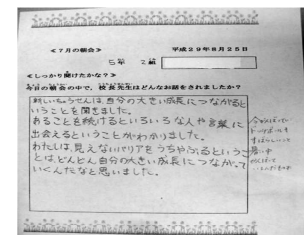 <7月の朝会> 平成29年8月25日
5年 2組
<しっかり聞けたかな?>
今日の朝会の中で、校長先生はどんなお話をされましたか?
新しいちょうせんは、自分の大きい成長につながると
いうことを聞きました。
あることを続けるといろいろな人や言葉に
出会えるということがわかりました。
わたしは、見えないバリアをうちやぶるというこ
とは、どんどん自分の大きい成長につながって
いくんだなと思いました。